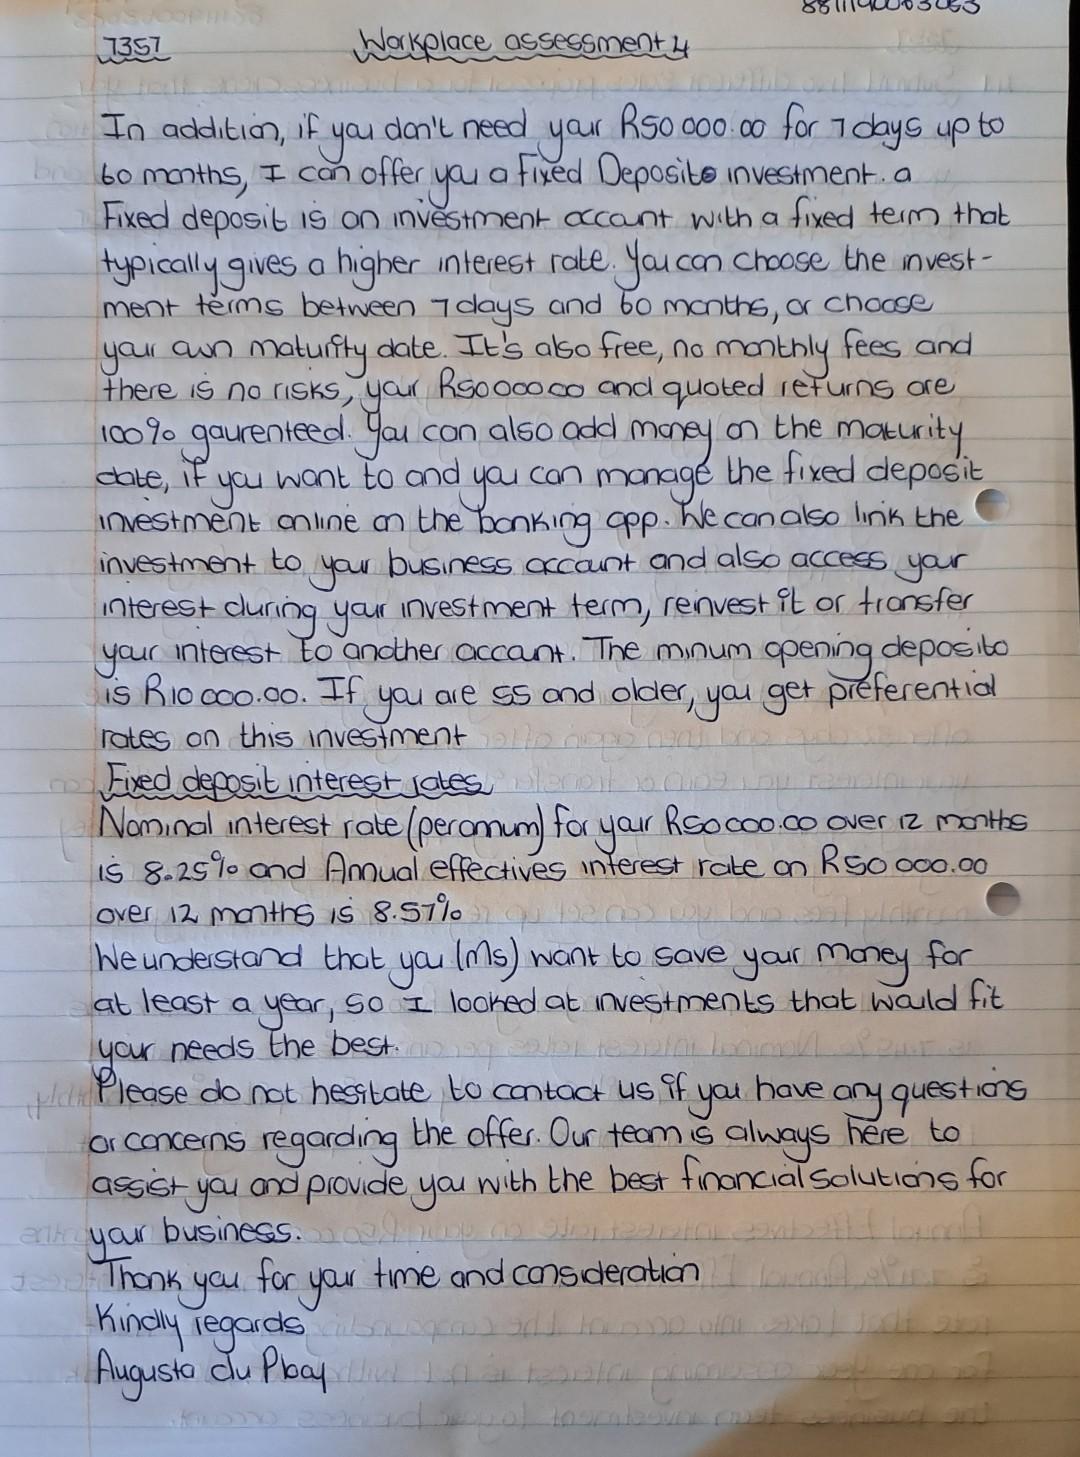 7357 Workplace assessment 4
In addition, if you don't need your R50 000.00 for 7 days up to
60 months, I can offer you a Fixed Deposits investment. a
Fixed deposit is an investment account with a fixed term that
typically gives a higher interest rate. You can choose the invest-
ment terms between 7 days and 60 months, or choose
your own maturity date. It's also free, no monthly fees and
there is no risks, your R5000000 and quoted returns are
100% gaurenteed. You can also add money on the maturity
date, if you want to and you can manage the fixed deposit
investment online on the banking app. We can also link the
investment to your business account and also access your
interest during your investment term, reinvest it or transfer
your interest to another account. The minum opening deposito
is R10 000.00. If you are 55 and older, you get preferential
rates on this investment
Fixed deposit interest rates
Nominal interest rate (per annum) for your R50 000.00 over 12 months
is 8.25% and Annual effectives interest rate on R50 000.00
over 12 months is 8.57%
We understand that you (Ms) want to save your money for
at least a year, so I looked at investments that would fit
your needs the best.
Please do not hesitate to contact us if you have any questions
or concerns regarding the offer. Our team is always here to
assist you and provide you with the best financial solutions for
your business.
Thank you for your time and consideration
Kindly regards
Augusta du Plooy